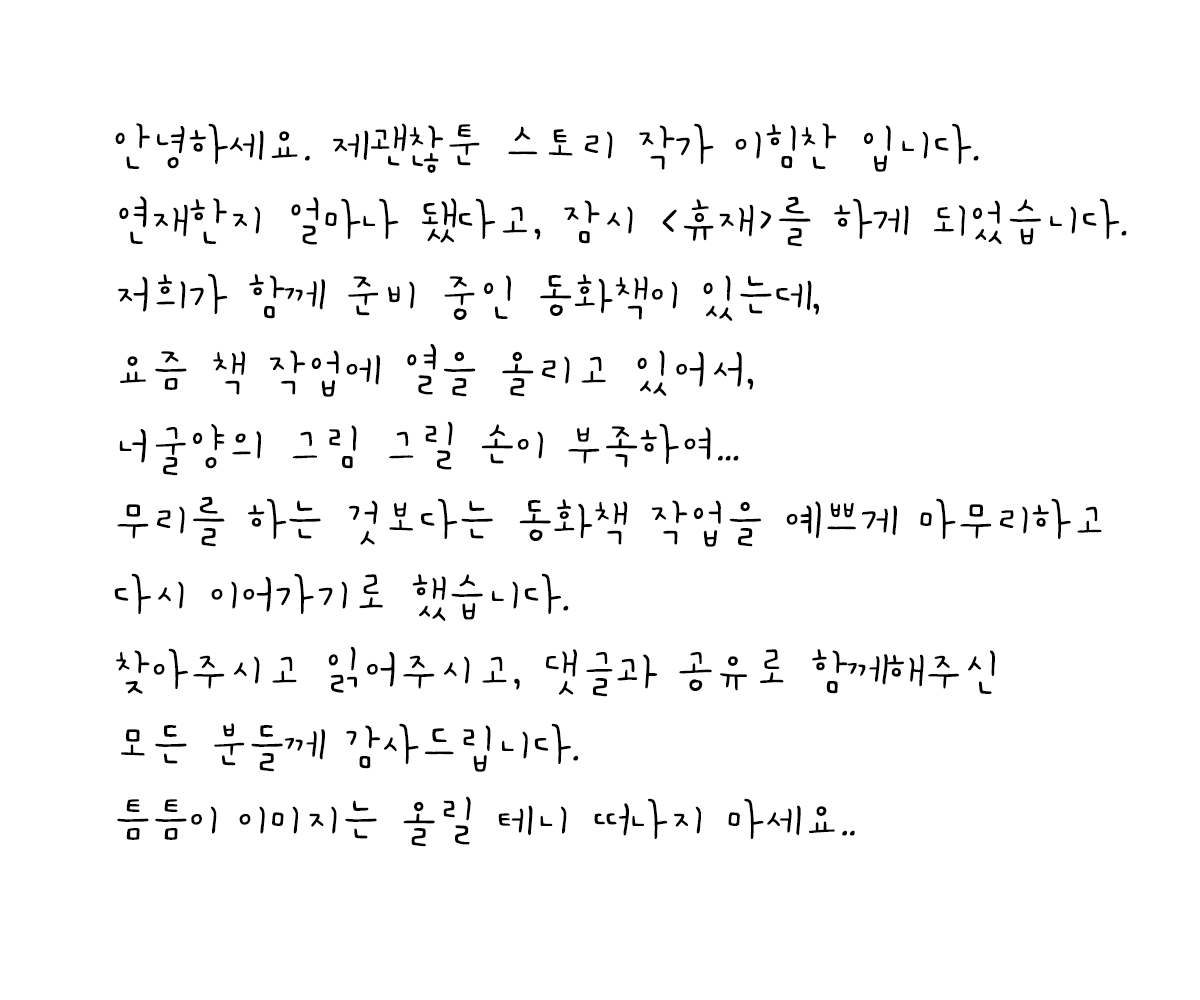 안녕하세요. 제괜찮툰 스토리 작가 이힘찬 입니다.
연재한지 얼마나 됐다고, 잠시 <휴재>를 하게 되었습니다.
저희가 함께 준비 중인 동화책이 있는데,
요즘 책 작업에 열을 올리고 있어서,
너굴양의 그림 그릴 손이 부족하여...
무리를 하는 것보다는 동화책 작업을 예쁘게 마무리하고
다시 이어가기로 했습니다.
찾아주시고 읽어주시고, 댓글과 공유로 함께해주신
모든 분들께 감사드립니다.
틈틈이 이미지는 올릴 테니 떠나지 마세요..